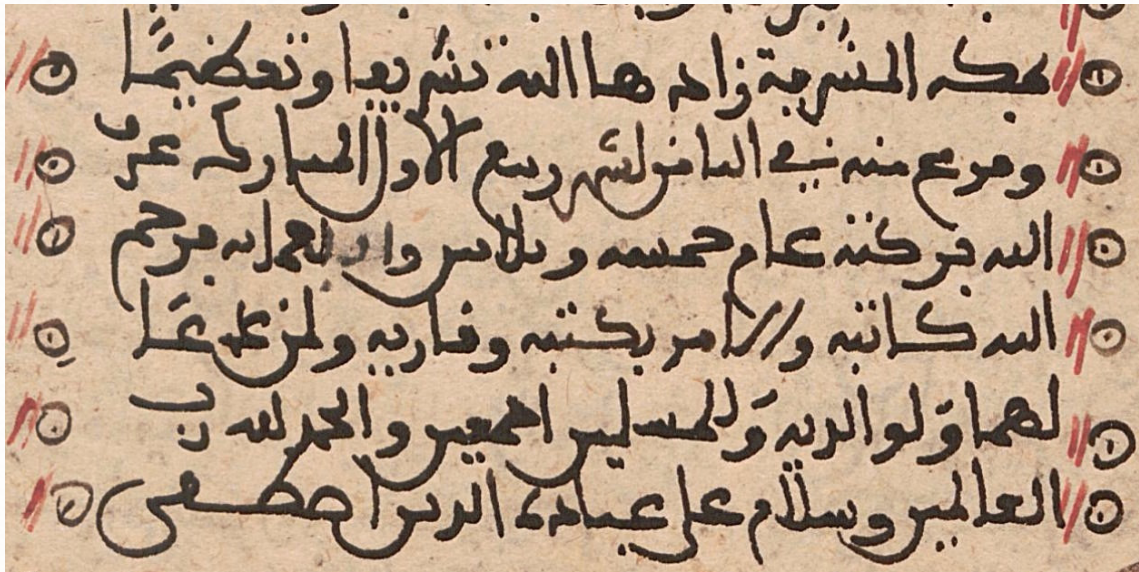 بمكة المشرفة زادها الله تشريفا وتعظيما
وفرغ منه في الثامن لشهر ربيع الاول المبارك عرف
الله بركته عام خمسة وثلاثين فرحم
الله كاتبه والامر بكتبه وقاريه ولمن دعا
لهما ولوالديه وللمسلمين اجمعين والحمد لله رب
العالمين وسلام على عباده الذين اصطفى